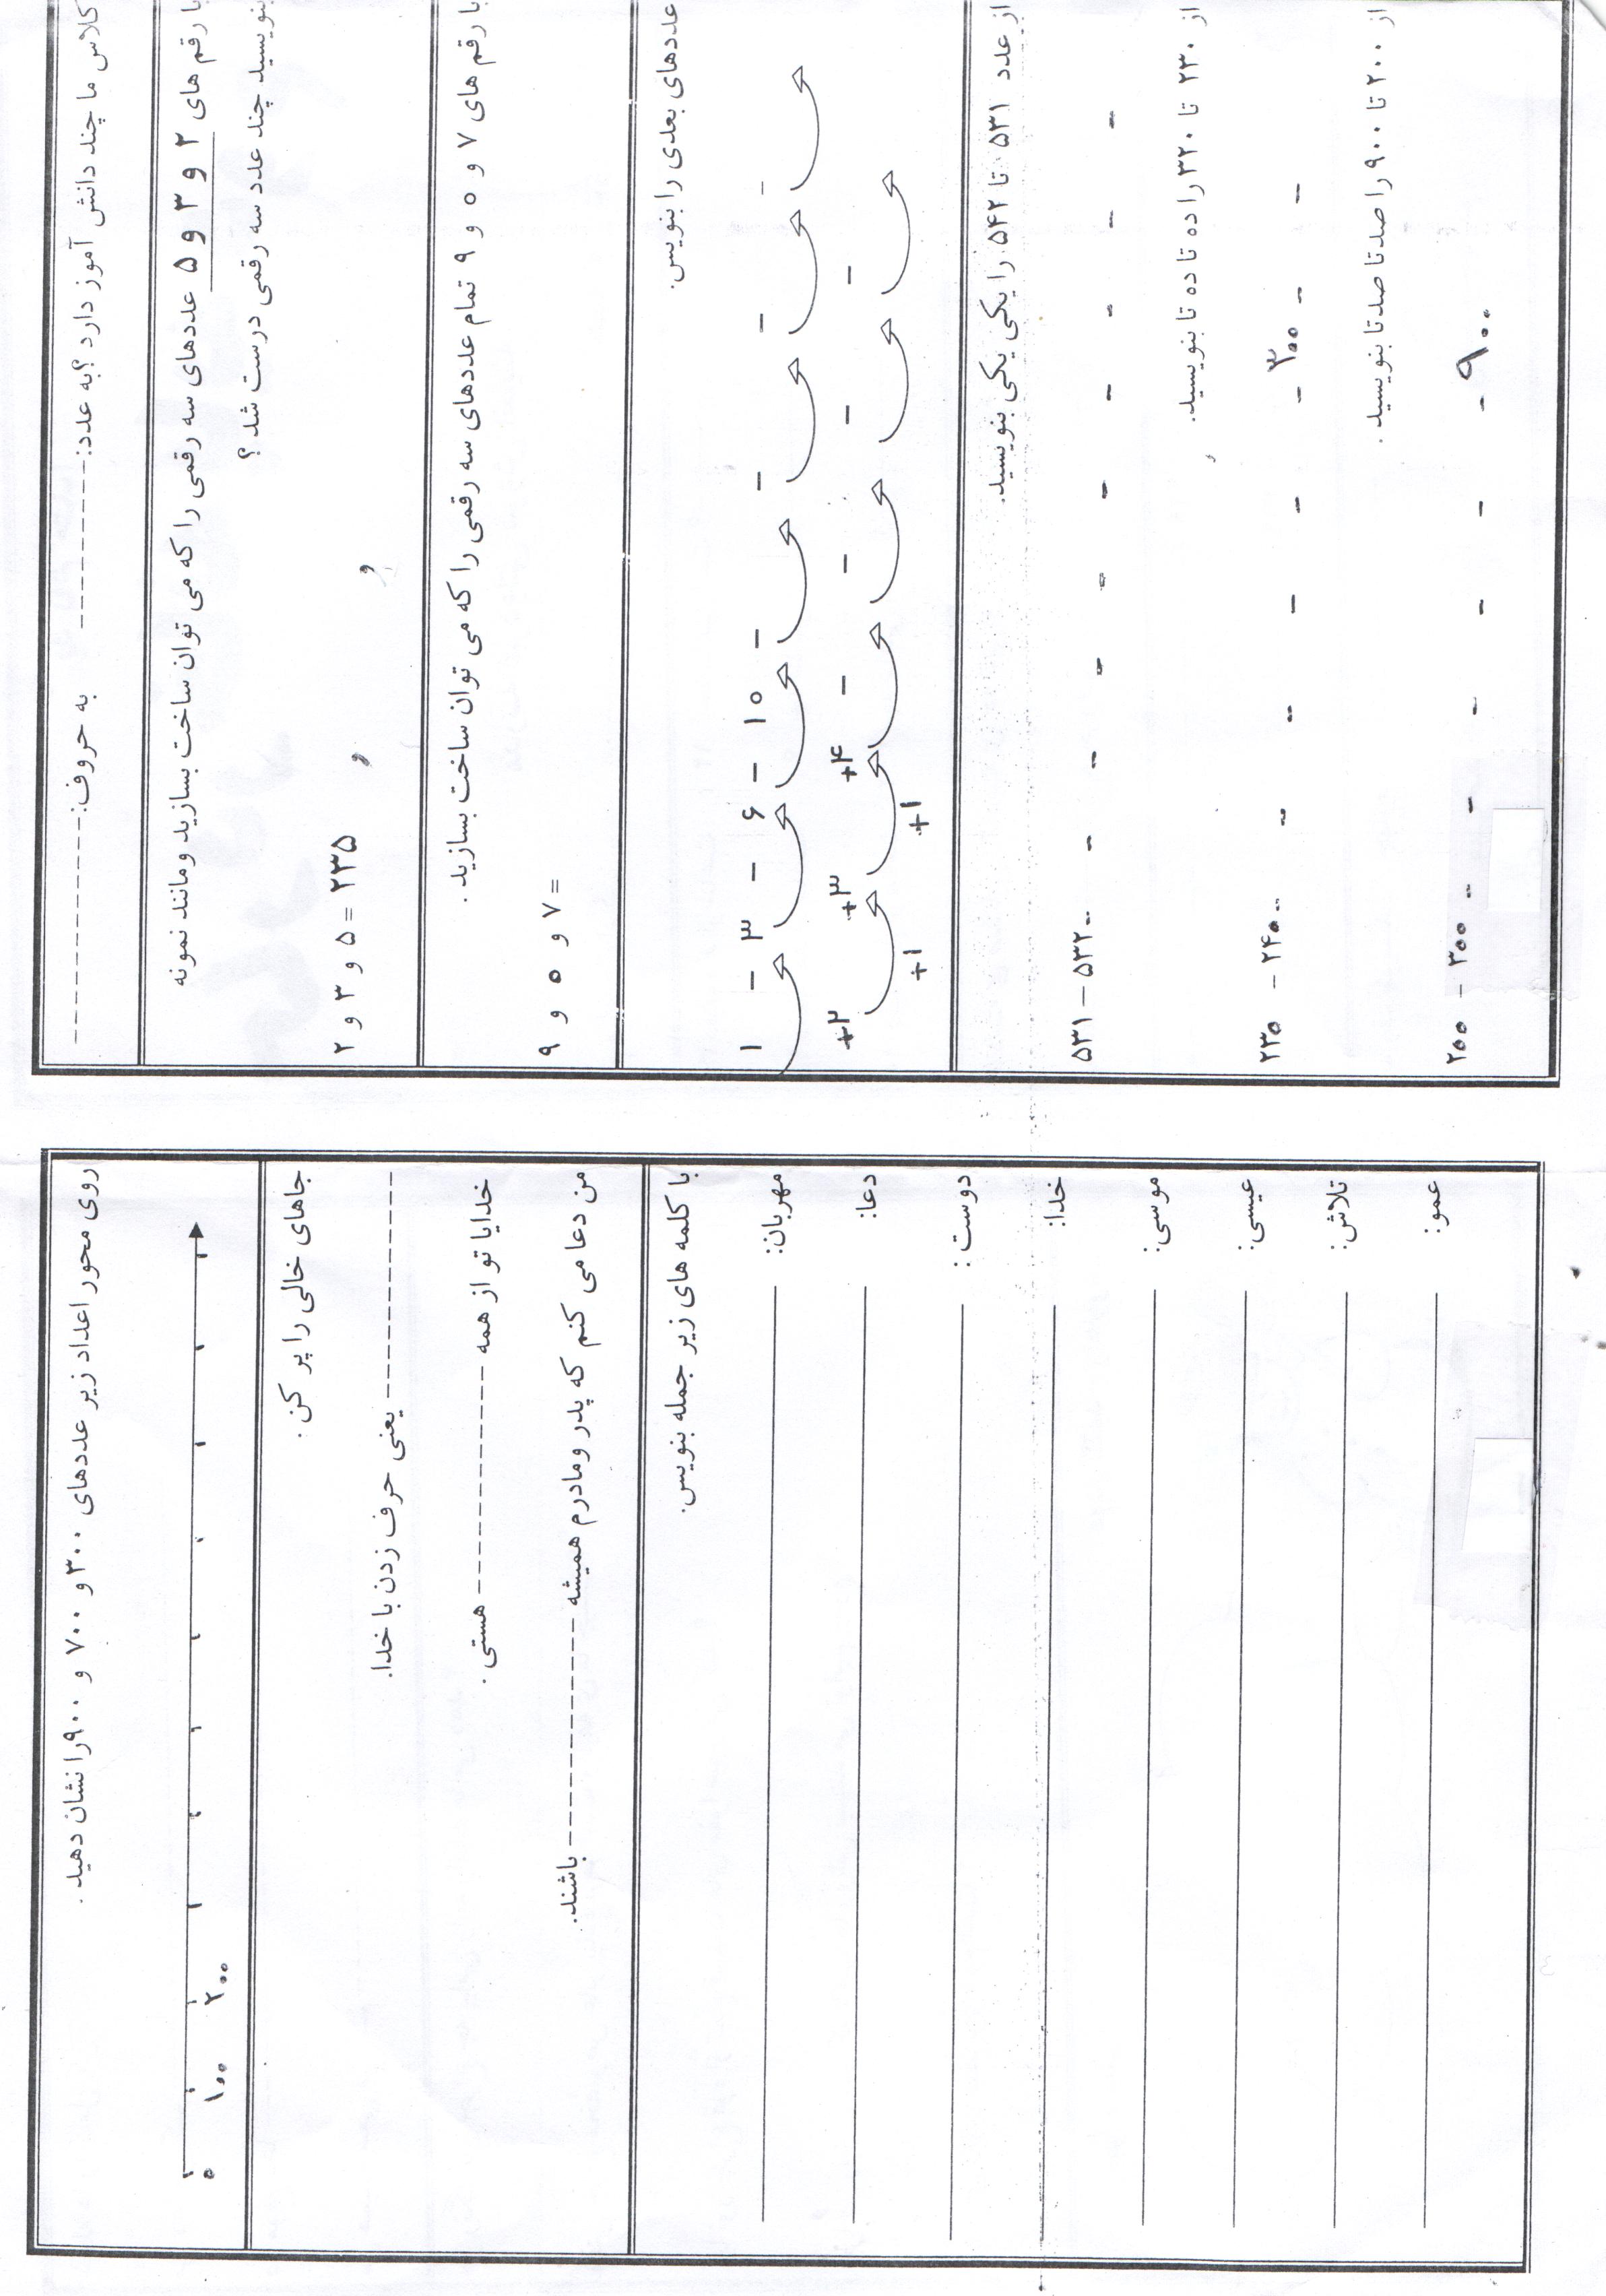 کلاس ما چند دانش آموز دارد ؟به عدد:------------ به حروف:----------------
با رقم های ۲ و ۳ و ۵ عددهای سه رقمی را که می توان ساخت بسازید ومانند نمونه
بنویسید چند عدد سه رقمی درست شد ؟
۲ و ۳ و ۵ = ۲۳۵ , ,
با رقم های ۷ و ۵ و ۹ تمام عددهای سه رقمی را که می توان ساخت بسازید .
۹ و ۵ و ۷ =
عددهای بعدی را بنویس.
۱ - ۳ - ۶ - ۱۰ - - - -
+۲ +۳ +۴ - - - -
+۱ +۱
از عدد ۵۳۱ تا ۵۴۲ را یکی یکی بنویسید.
۵۳۱ – ۵۳۲ - - - - - - - - - -
از ۲۳۰ تا ۳۲۰ را ده تا ده تا بنویسید.
۲۳۰ - ۲۴۰ - - - - - - ۳۰۰ - -
از ۲۰۰ تا ۹۰۰ را صد تا صد تا بنویسید .
۲۰۰ - ۳۰۰ - - - - - - ۹۰۰
روی محور اعداد زیر عددهای ۳۰۰ و ۷۰۰ و ۹۰۰را نشان دهید .
۰ ۱۰۰ ۲۰۰
جاهای خالی را پر کن .
---------------- یعنی حرف زدن با خدا.
خدایا تو از همه ---------------- هستی .
من دعا می کنم که پدر ومادرم همیشه ---------------- باشند.
با کلمه های زیر جمله بنویس.
مهربان:
دعا:
دوست :
خدا:
موسی:
عیسی:
تلاش:
عمو: